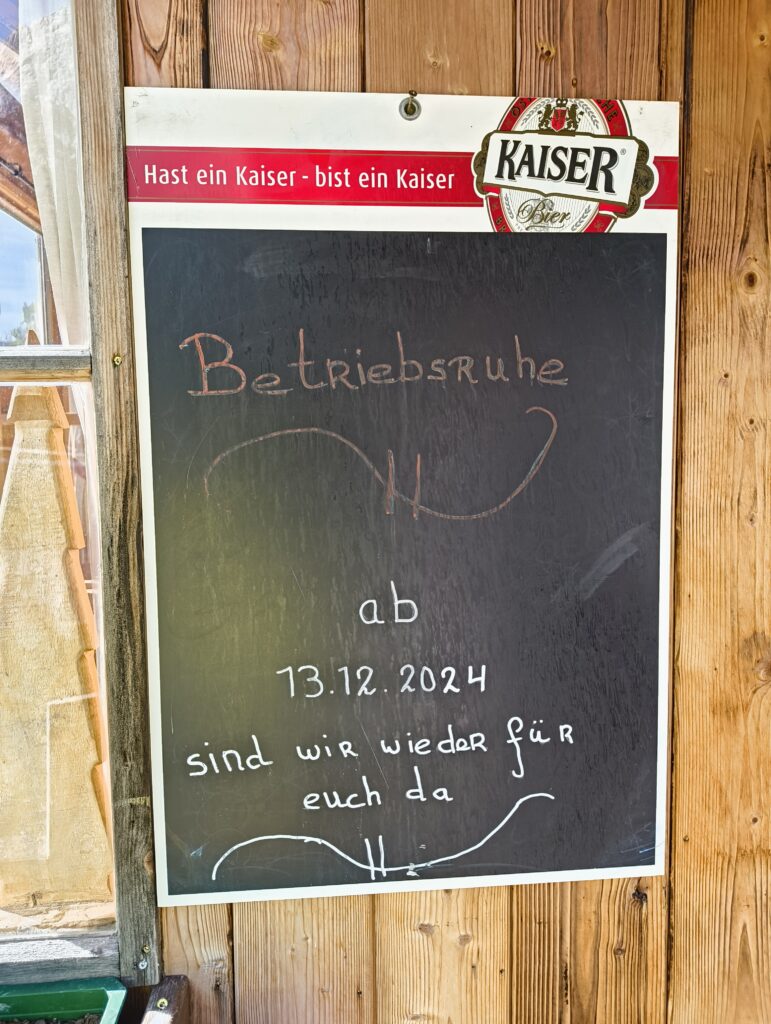 Hast ein Kaiser - bist ein Kaiser
KAISER®
Bier
Betriebsruhe
ab
13.12.2024
sind wir wieder für
euch da